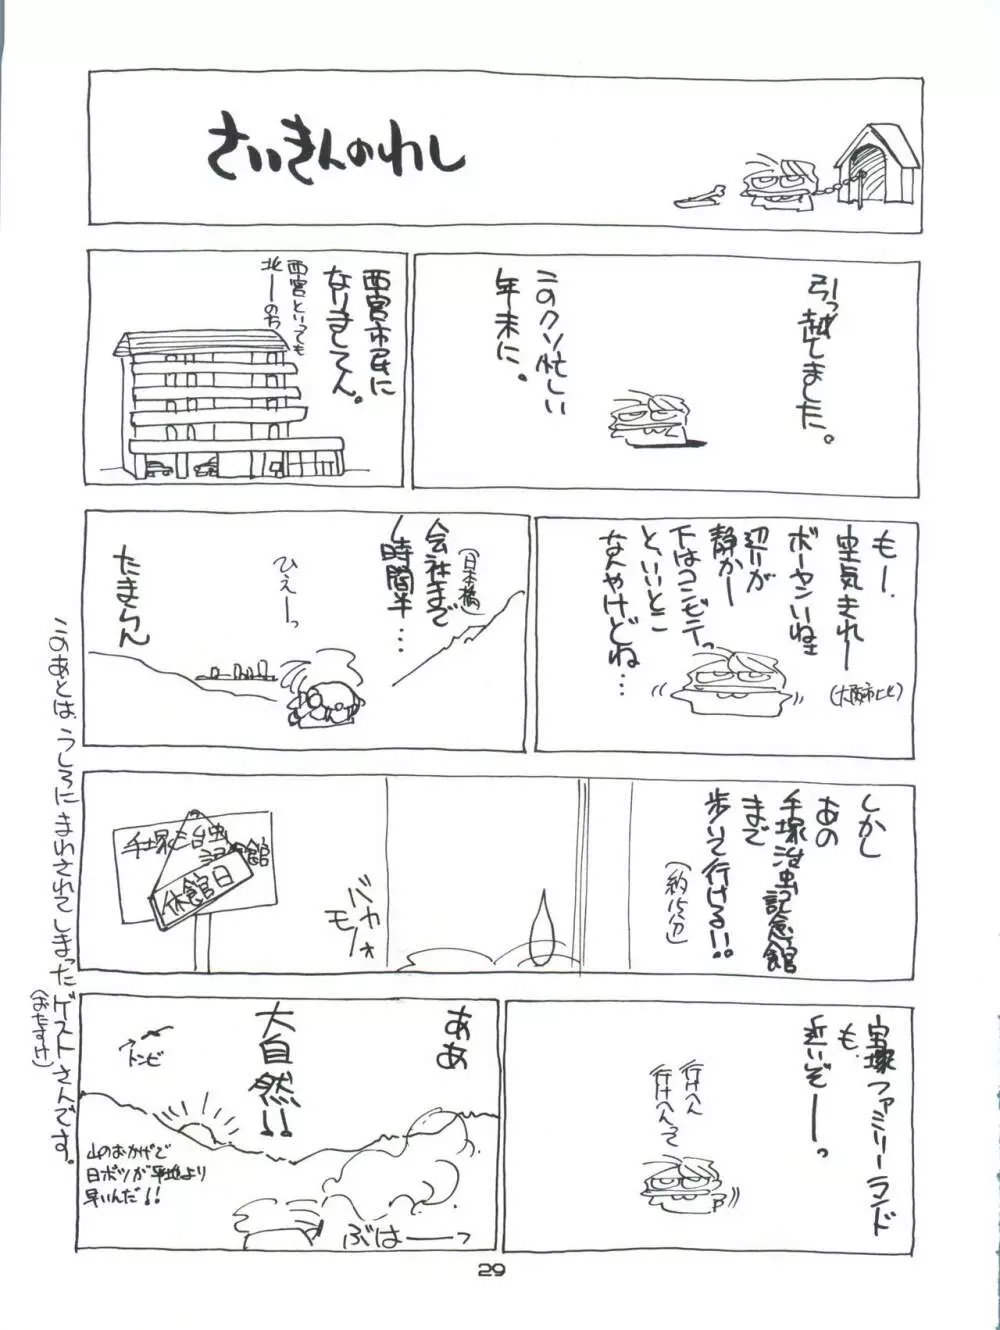 さいきんのわし
引っ越しました。
このクソ忙しい
年末に。
西宮市民に
なりましてん。
西宮といっても
北ーのち
もー、
空気きれー
ボーヤンいねェ
辺りが
静かー
下はコンビニっ
と、いいとこ
なんやけどね…
(大阪市比)
会社まで
(日本橋)
1時間半…
ひえーっ
たまらん
しかし
あの
手塚治虫記念館
まで
歩いて行ける!!
(約15分)
バカ
モノ
手塚治虫
記念館
休館日
宝塚ファミリーランド
も、
近いぞーっ。
行けへん
行けへんて
ああ
大自然!!
トンビ
山のおかげで
日ボツが平地より
早いんだ!!
ぶはーーっ
このあとは、うしろにまわされてしまったゲストさんです。
(おたすけ)
29